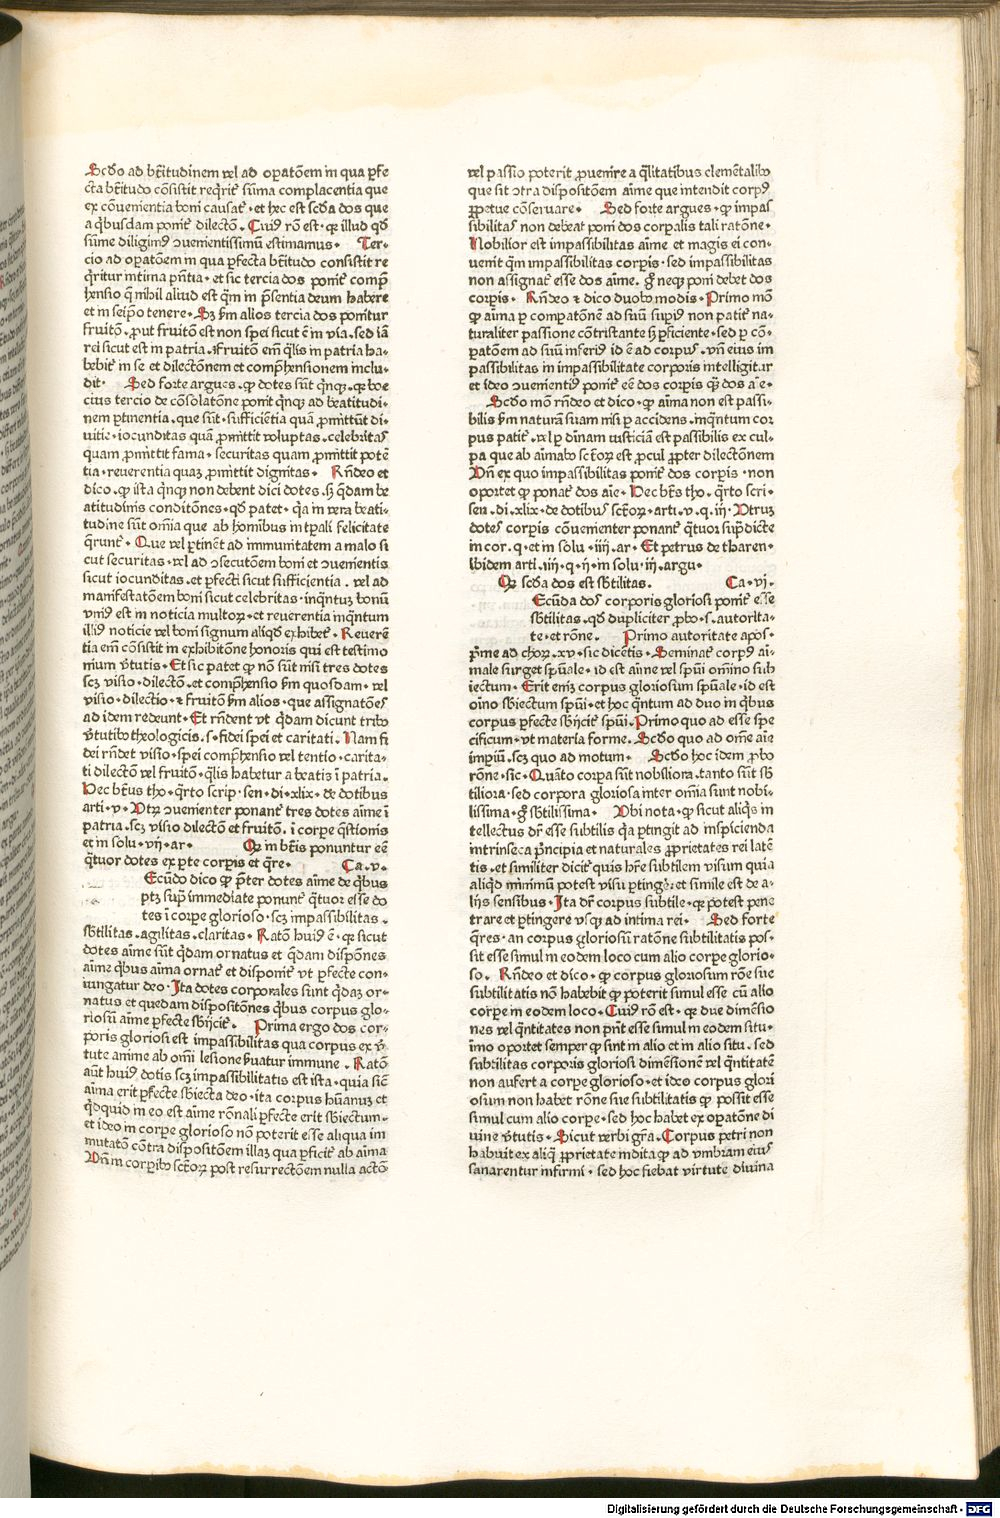 Scd̄o ad btītudinem vel ad opatōem in qua pfe
cta btītudo cōsistit reqrit̄ sūma complacentia que
ex cōuenientia boni causat̄ · et hec est scd̄a dos que
a qbusdam ponit̄ dilectō. Cuiꝰ rō est · qꝛ illud qd̄
sūme diligimꝰ ꝯuenientissimū estimamus · Ter-
cio ad opatōem in qua pfecta btītudo consistit re
qritur intima pn̄tia · et sic tercia dos ponit̄ comp̄
hensio q̄ nihil aliud est q̄m in p̄sentia deum habere
et in seipo tenere · Sꝫ ẜm alios tercia dos ponitur
fruitō · prout fruitō est non spei sicut ē in via · sed iā
rei sicut est in patria · Fruitō em̄ q̄lis in patria ha-
bebit̄ in se et dilectōnem et comp̄hensionem inclu-
dit · Sed forte argues · ꝙ dotes sūt qnqꝫ · qꝛ boe
cius tercio de cōsolatōne ponit qnqꝫ ad beatitudi-
nem ptinentia · que sūt · sufficiētia quā pmittūt di-
uitie · iocunditas quā pmittit voluptas · celebritas
quam pmittit fama · securitas quam pmittit potē
tia · reuerentia quaꝫ pmittit dignitas · Rn̄deo et
dico · ꝙ ista qnqꝫ non debent dici dotes · sꝫ qdam be
atitudinis conditōnes · qd̄ patet · qa in vera beati-
tudine sūt om̄ia que ab hominibus in tpali felicitate
qrunt̄ · Que vel ptinēt ad immunitatem a malo si
cut securitas · vel ad ꝯsecutōem boni et ꝯuenientis
sicut iocunditas · et pfecti sicut sufficientia · vel ad
manifestatōem boni sicut celebritas · inqntuꝫ bonū
vniꝰ est in noticia multoꝝ · et reuerentia inqntum
illiꝰ noticie vel boni signum aliqd̄ exhibet̄ · Reuerē
tia em̄ consistit in exhibitōne honoris qui est testimo
nium v̄tutis · Et sic patet ꝙ nō sūt nisi tres dotes
scꝫ visio · dilectō · et comp̄hensio ẜm quosdam · vel
visio · dilectio · ⁊ fruitō ẜm alios · que assignatōes
ad idem redeunt · Et rn̄dent vt qdam dicunt tribꝰ
v̄tutibꝰ theologicis · s · fidei spei et caritati · Nam fi
dei rn̄det visio · spei comp̄hensio vel tentio · carita-
ti dilectō vel fruitō · q̄lis habetur a beatis ī patria ·
Hec btūs tho · qrto scrip · sen · di · xlix · de dotibus
arti · v · Vtꝝ ꝯuenienter ponant̄ tres dotes aīme ī
patria · scꝫ visio dilectō et fruitō · ī corpe q̄stionis
et in solu · vij · ar · Qꝝ in btīs ponuntur eē
q̄tuor dotes ex pte corpis et qre · Ca · v ·
Ecūdo dico ꝙ p̄ter dotes aīme de qbus
ptꝫ supͥ immediate ponunt̄ q̄tuor esse do
tes ī corpe glorioso · scꝫ impassibilitas ·
sbtilitas · agilitas · claritas · Ratō huiꝰ ē · qꝛ sicut
dotes aīme sūt qdam ornatus et qdam dispōnes
aīme qbus aīma ornat̄ et disponit̄ vt pfecte con-
iungatur deo · Ita dotes corporales sunt qdaꝫ or-
natus et quedam dispositōnes qbus corpus glo-
riosū aīme pfecte sbijcit̄ · Prima ergo dos cor-
poris gloriosi est impassibilitas qua corpus ex v̄
tute anime ab om̄i lesione ẜuatur immune · Ratō
aūt huiꝰ dotis scꝫ impassibilitatis est ista · quia sicū
aīma erit pfecte sbiecta deo · ita corpus hūanuꝫ et
qdquid in eo est aīme rōnali pfecte erit sbiectum ·
et ideo in corpe glorioso nō poterit esse aliqua im
mutatō cōtra dispositōem illaꝫ qua pficit̄ ab aīma
Vn̄ in corpibꝰ sctōꝝ post resurrectōem nulla actō
vel passio poterit prouenire a q̄litatibus elemētalibꝰ
que sit ꝯtra dispositōem aīme que intendit corpꝰ
ppetue cōseruare · Sed forte argues · ꝙ impas
sibilitas non debeat poni dos corpalis tali ratōne ·
Nobilior est impassibilitas aīme et magis ei con-
uenit q̄m impassibilitas corpis · sed impassibilitas
non assignat̄ esse dos aīme · gͦ neqꝫ poni debet dos
corpis · Rn̄deo ⁊ dico duobꝰ modis · Primo mō
ꝙ aīma p compatōnē ad suū supiꝰ non patit̄ na-
turaliter passione cōtristante sꝫ pficiente · sed p cō-
patōem ad suū inferiꝰ id ē ad corpus · vn̄ eius im
passibilitas in impassibilitate corporis intelligitur
et ideo ꝯuenientiꝰ ponit̄ eē dos corpis qꝫ dos aīe ·
Scd̄o mō rn̄deo et dico · ꝙ aīma non est passi-
bilis ẜm naturā suam nisi p accidens · inqntum cor
pus patit̄ · vel p diuinam iusticiā est passibilis ex cul-
pa que ab aīmabꝰ sctōꝝ est procul ppter dilectōnem
Vn̄ ex quo impassibilitas ponit̄ dos corpis · non
oportet ꝙ ponat̄ dos aīe · Hec btūs tho · qrto scri-
sen · di · xlix · de dotibus sctōꝝ · arti · v · q · iij · Vtruꝫ
dotes corpis cōuenienter ponant̄ q̄tuor supͥdicte
in cor · q · et in solu · iiij · ar · Et petrus de tharen-
thidem arti · iiij · q · ij · in solu · iij · argu ·
Qꝝ scd̄a dos est sbtilitas · Ca · vj ·
Ecūda dos corporis gloriosi ponit̄ esse
sbtilitas · qd̄ dupliciter pbo · s · autorita-
te · et rōne · Primo autoritate apos-
pͥme ad choꝝ · xv · sic dicetis · Seminat̄ corpꝰ ai-
male surget spūale · id est aīme vel spūi om̄ino sub
iectum · Erit enīꝫ corpus gloriosum spūale · id est
oīno sbiectum spūi · et hoc qntum ad duo in qbus
corpus pfecte sbijcit̄ spūi · Primo quo ad esse spe
cificum · vt materia forme · Scd̄o quo ad om̄e aīe
impiū · scꝫ quo ad motum · Scd̄o hoc idem pbo
rōne · sic · Quāto corpa sūt nobiliora · tanto sūt sb
tiliora · sed corpora gloriosa inter om̄ia sunt nobi-
lissima · gͦ sbtilissima · Vbi nota · ꝙ sicut aliqs in
tellectus dr̄ esse subtilis qa ptingit ad inspicienda
intrinseca pͥncipia et naturales pprietates rei latē
tis · et similiter dicit̄ quis hr̄e subtilem visum quia
aliqd̄ minimū potest visu ptinge · et simile est de a-
lijs sensibus · Ita dr̄ corpus subtile · qꝛ potest pene
trare et ptingere vsqꝫ ad intima rei · Sed forte
qres · an corpus gloriosū ratōne subtilitatis pos-
sit esse simul in eodem loco cum alio corpe glorio-
so · Rn̄deo et dico · ꝙ corpus gloriosum rōne sue
subtilitatis nō habebit ꝙ poterit simul esse cū alio
corpe in eodem loco · Cuiꝰ rō est · qꝛ due dimēsio
nes vel q̄ntitates non pn̄t esse simul in eodem situ ·
īmo oportet semper ꝙ sint in alio et in alio situ · sed
subtilitas corporis gloriosi dimēsionē vel q̄ntitatē
non aufert a corpe glorioso · et ideo corpus glori
osum non habet rōne sue subtilitatis ꝙ possit esse
simul cum alio corpe · sed hoc habet ex opatōne di
uine v̄tutis · Sicut verbi gr̄a · Corpus petri non
habuit ex aliq̄ pprietate indita ꝙ ad vmbram eius
sanarentur infirmi · sed hoc fiebat virtute diuina
Digitalisierung gefördert durch die Deutsche Forschungsgemeinschaft - DFG